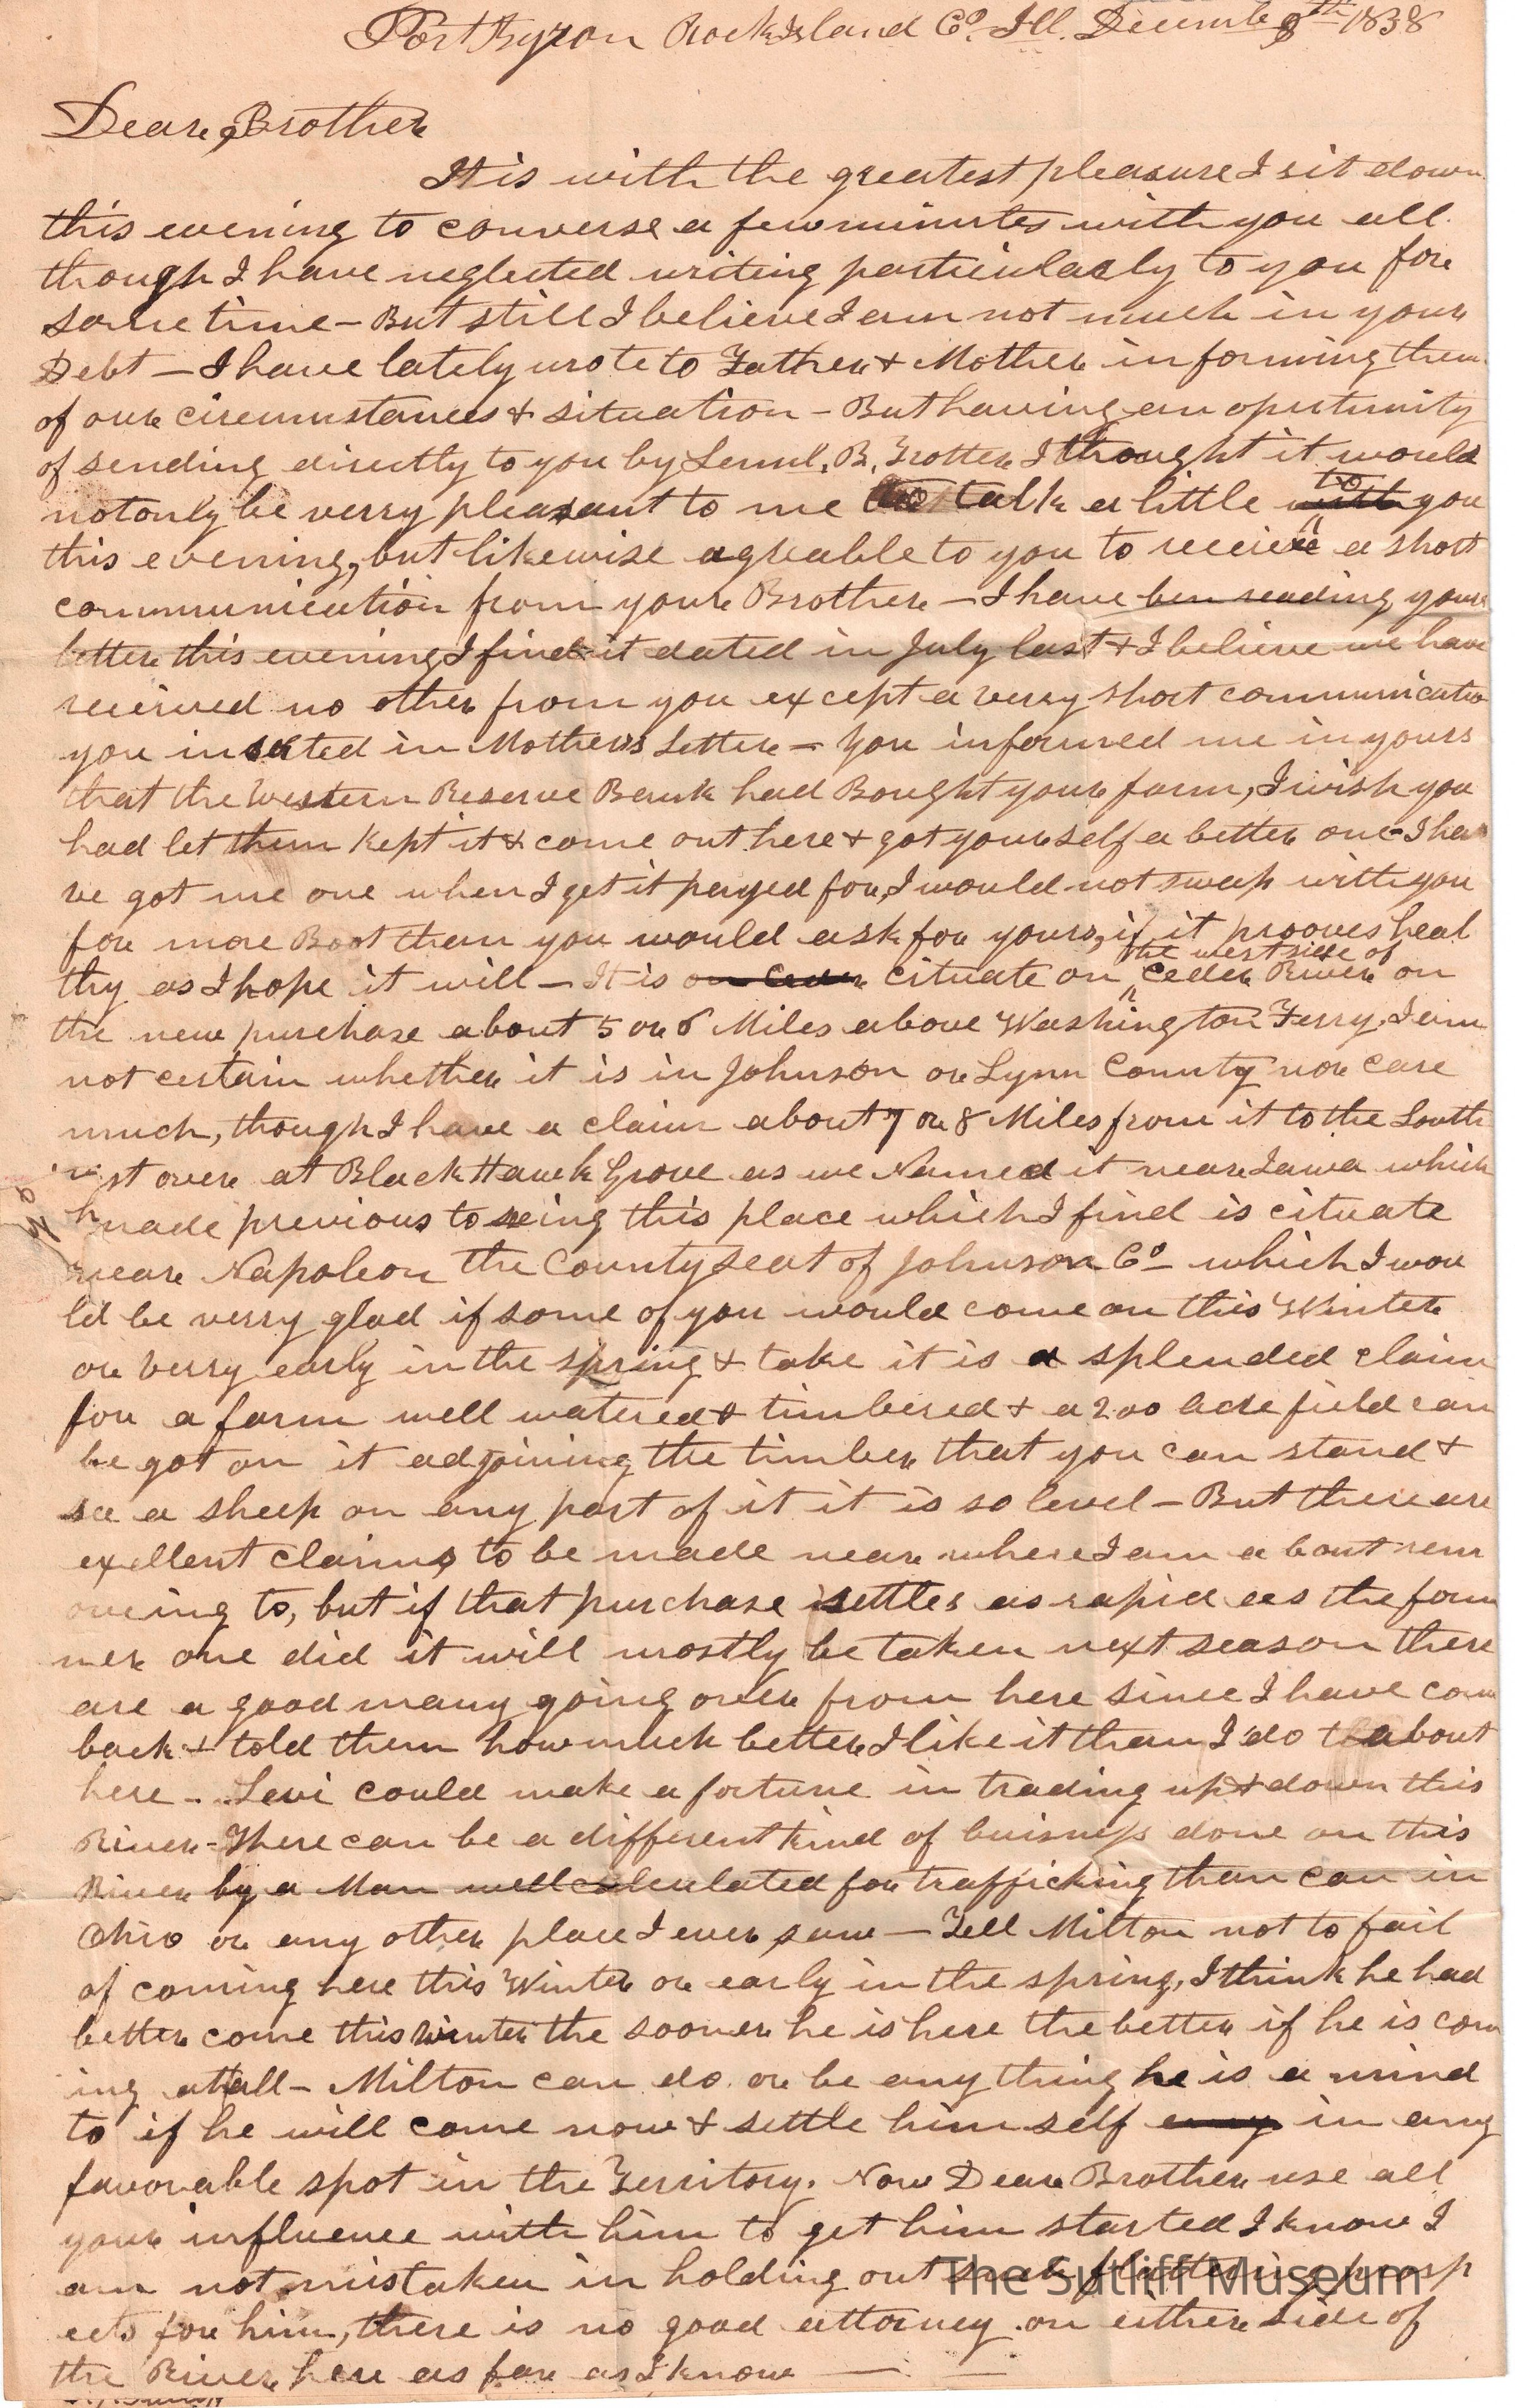 Port Byron Rock Island Co. Ill. December 9th 1838
Dear Brother
It is with the greatest pleasure I sit down
this evening to converse a few minutes with you all
though I have neglected writing particularly to you for
some time – But still I believe I am not much in your
Debt – I have lately wrote to Father & Mother informing them
of our circumstances & situation – But having an opertunity
of sending directly to you by Leml. B. Trotter I thought it would
not only be verry pleasant to me to talk a little with to you
this evening, but likewise agreable to you to receive a short
communication from your Brother – I have ben reading your
letter this evening I find it dated in July last & I believe we have
recieved no other from you except a verry short communicatio
you inserted in Mothers Letter – You informed me in yours
that the Western Reserve Bank had Bought your farm, I wish you
had let them kept it & come out here & got yourself a better one – I ha
ve got me one when I get it payed for, I would not swap with you
for more Boot than you would ask for yours, if it prooves heal
thy as I hope it will – It is on Ceder cituate on the west side of Ceder River on
the new purchase about 5 or 6 Miles above Washington Ferry, I am
not certain whether it is in Johnson or Lynn County nor care
much, though I have a claim about 7 or 8 Miles from it to the South
st over at Black Hawk Grove as we Named it near Iawa which
made previous to seing this place which I find is cituate
near Napoleon the County seat of Johnson Co – which I wou
ld be verry glad if some of you would come on this Winter
or verry early in the spring & take it is a splended claim
for a farm well watered & timbered & a 200 acre field can
be got on it adjoining the timber that you can stand &
see a sheep on any part of it it is so level – But there are
exellent claims to be made near where I am about rem
oveing to, but if that purchase settles as rapid as the for
mer one did it will mostly be taken next season there
are a good many going over from here since I have com
back & told them how much better I like it than I do about
here – Levi could make a fortune in trading up & down this
River – There can be a different kind of buisness done on this
River by a Man well calculated for trafficking than can in
Ohio or any other place I ever saw – Tell Milton not to fail
of coming here this Winter or early in the spring, I think he had
better come this Winter the sooner he is here the better if he is com
ing at all – Milton can do or be any thing he is a mind
to if he will come now & settle himself any in any
favorable spot in the Territory. Now Dear Brother use all
your influence with him to get him started I know I
am not mistaken in holding out such flattering prosp
ects for him, there is no good attorney on either side of
the River here as far as I know –
The Sutliff Museum